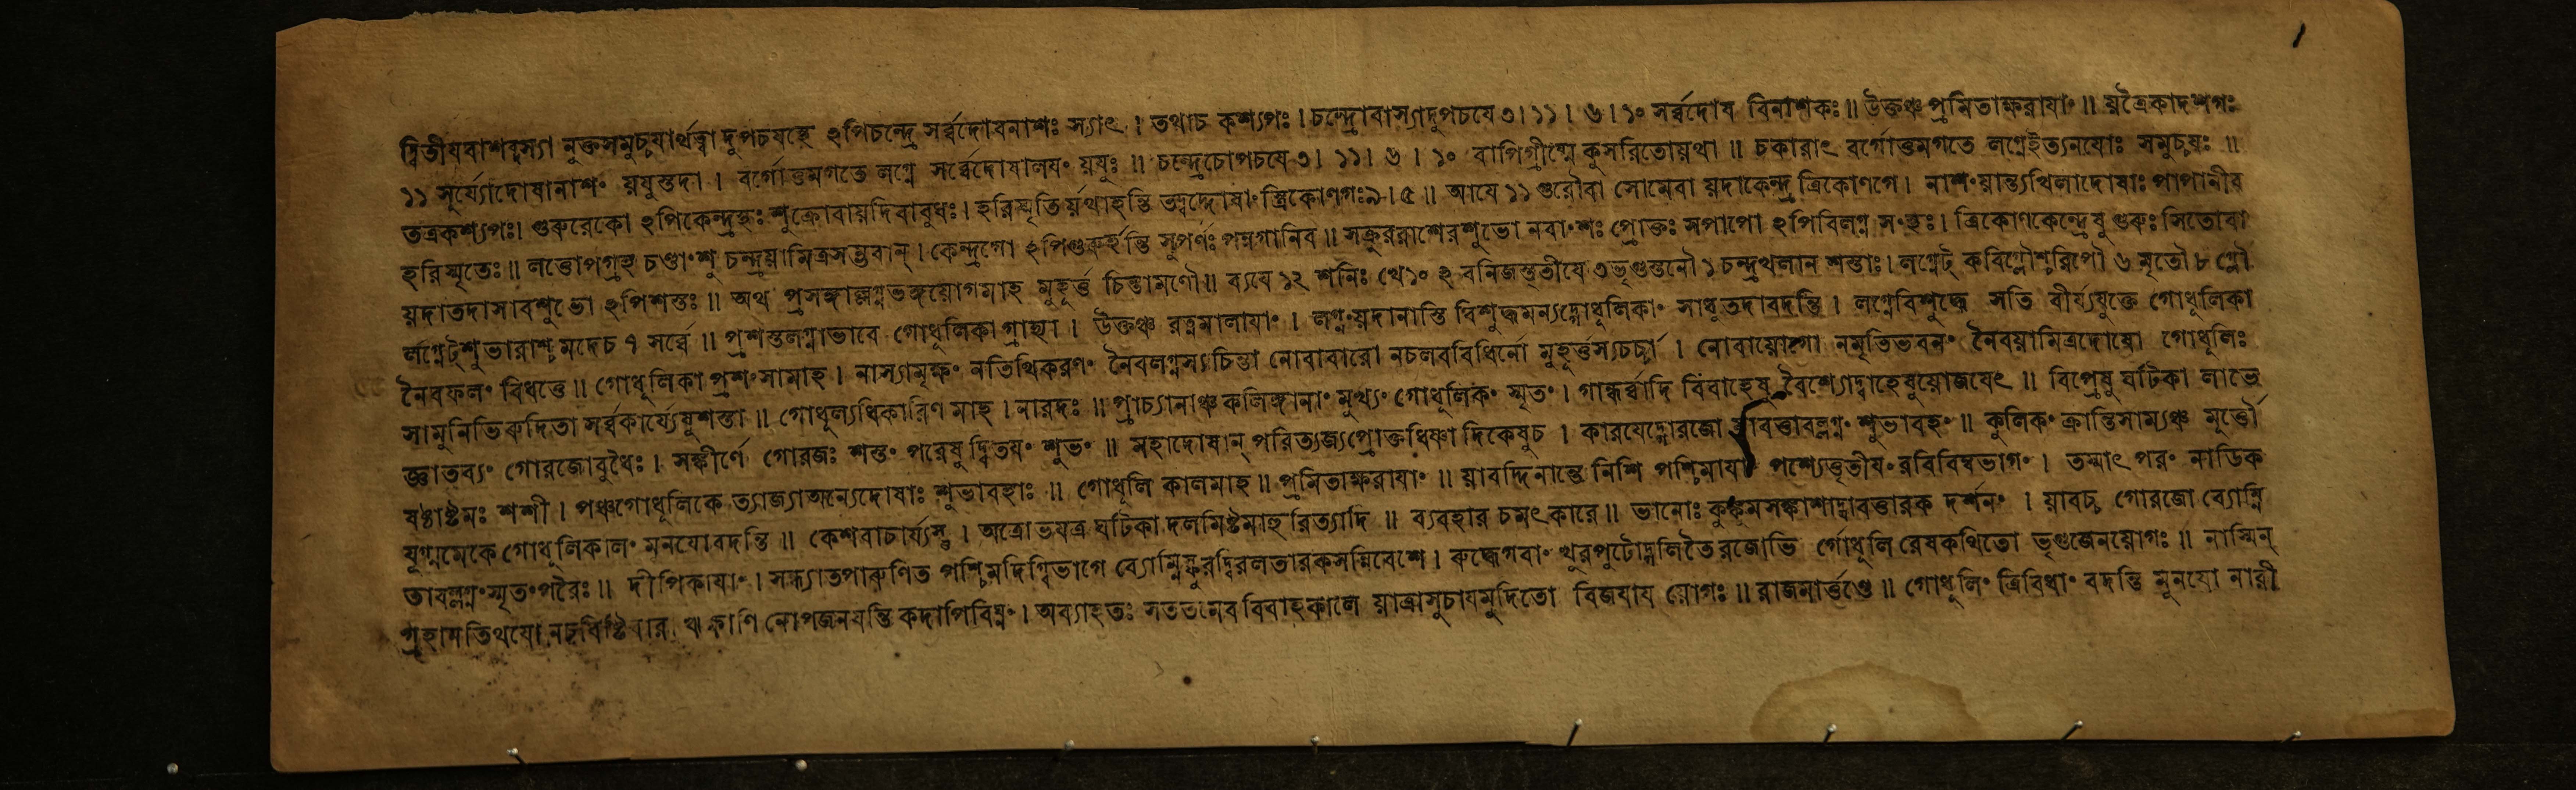 ১
দ্বিতীযবাশব্দস্যা নুক্তসমুচ্চযার্থত্বা দুপচযস্থে ২পিচন্দ্রে সর্ব্বদোষনাশঃ স্যাৎ । তথাচ কশ্যপঃ । চন্দ্রোবাস্যাদুপচযে ৩। ১১ । ৬ । ১০ সর্ব্বদোষ বিনাশকঃ ॥ উক্তঞ্চ প্রমিতাক্ষরাযাং ॥ য়ত্রৈকাদশগঃ
১১ সূর্য্যোদোষানাশং য়যুস্তদা । বর্গোত্তমগতে লগ্নে সর্ব্বেদোষালযং য়যুঃ ॥ চন্দ্রেচোপচযে ৩। ১১। ৬ । ১০ বাপিগ্রীষ্মে কুসরিতোয়থা ॥ চকারাৎ বর্গোত্তমগতে লগ্নেইত্যনযোঃ সমুচ্চযঃ ॥
তত্রকশ্যপঃ। গুরুরেকো ২পিকেন্দ্রস্থঃ শুক্রোবায়দিবাবুধঃ। হরিস্মৃতির্য়থাহন্তি তদ্বদ্দোষাং স্ত্রিকোণগঃ৯।৫ ॥ আযে ১১ গুরৌবা সোমেবা য়দাকেন্দ্র ত্রিকোণগে । নাশংয়ান্ত্যখিলাদোষাঃ পাপানীব
হরিস্মৃতেঃ ॥ লত্তোপগ্রহ চণ্ডাংশু চন্দ্রয়ামিত্রসম্ভবান্ । কেন্দ্রগো ২পিগুরুর্হন্তি সুপর্ণঃ পন্নগানিব ॥ সক্রূররাশেরশুভো নবাংশঃ প্রোক্তঃ সপাপো ২পিবিলগ্ন সংস্থঃ। ত্রিকোণকেন্দ্রেষু গুরুঃ সিতোবা
য়দাতদাসাবশুভো ২পিশস্তঃ ॥ অথ প্রসঙ্গাল্লগ্নভঙ্গয়োগমাহ মুহূর্ত্ত চিন্তামণৌ ॥ ব্যযে ১২ শনিঃ খে১০ ২বনিজস্তৃতীযে ৩ভৃগুস্তনৌ ১ চন্দ্রখলান শস্তাঃ। লগ্নেট্ কবিগ্লৌশ্চরিপৌ ৬ মৃতৌ ৮ গ্লৌ
র্লগ্নেট্শুভারাশ্চ মদেচ ৭ সর্ব্বে ॥ প্রশস্তলগ্নাভাবে গোধূলিকা গ্রাহ্যা । উক্তঞ্চ রত্নমালাযাং । লগ্নংয়দানাস্তি বিশুদ্ধমন্যদ্গোধূলিকাং সাধুতদাবদন্তি । লগ্নেবিশুদ্ধে সতি বীর্য্যযুক্তে গোধূলিকা
নৈবফলং বিধত্তে ॥ গোধূলিকা প্রশংসামাহ । নাস্যামৃক্ষং নতিথিকরণং নৈবলগ্নস্যচিন্তা নোবাবারো নচলববিধির্নো মুহূর্ত্তস্যচর্চ্চা । নোবায়োগো নমৃতিভবনং নৈবয়ামিত্রদোষো গোধূলিঃ
সামুনিভিরুদিতা সর্ব্বকার্য্যেষুশস্তা ॥ গোধূল্যধিকারিণ মাহ । নারদঃ ॥ প্রাচ্যানাঞ্চ কলিঙ্গানাং মুখ্যং গোধূলিকং স্মৃতং । গান্ধর্ব্বাদি বিবাহেষু বৈশ্যোদ্বাহেষুয়োজযেৎ ॥ বিপ্রেষু ঘটিকা লাভে
জ্ঞাতব্যং গোরজোবুধৈঃ । সঙ্কীর্ণে গোরজঃ শস্তং পরেষু দ্বিতযং শুভং ॥ মহাদোষান্ পরিত্যজ্যপ্রোক্তধিষ্ণ্যা দিকেষুচ । কারযেদ্গোরজো য়াবত্তাবল্লগ্নং শুভাবহং ॥ কুলিকং ক্রান্তিসাম্যঞ্চ মূর্ত্তৌ
ষষ্ঠাষ্টমঃ শশী । পঞ্চগোধূলিকে ত্যাজ্যাঅন্যেদোষাঃ শুভাবহাঃ ॥ গোধূলি কালমাহ ॥ প্রমিতাক্ষরাযাং ॥ য়াবদ্দিনান্তে নিশি পশ্চিমাযাং পশ্যেত্তৃতীযং রবিবিম্বভাগং । তস্মাৎ পরং নাডিক
যুগ্মমেকে গোধূলিকালং মনযোবদন্তি ॥ কেশবাচার্য্যস্তু । অত্রোভযত্র ঘটিকা দলমিষ্টমাহু রিত্যাদি ॥ ব্যবহার চমৎকারে ॥ ভানোঃ কুঙ্কুমসঙ্কাশাদ্যাবত্তারক দর্শনং । য়াবচ্চ গোরজো ব্যোম্নি
তাবল্লগ্নংস্মৃতংপরৈঃ ॥ দীপিকাযাং । সন্ধ্যাতপারুণিত পশ্চিমদিগ্বিভাগে ব্যোম্নিস্ফুরদ্বিরলতারকসন্নিবেশে । রুদ্ধেগবাং খুরপুটোদ্দলিতৈ রজোভি র্গোধূলি রেষকথিতো ভৃগুজেনয়োগঃ ॥ নাস্মিন্
গ্রহানতিথযো নচবিষ্টিবারা ঋক্ষাণি নোপজনযন্তি কদাপিবিঘ্নং । অব্যাহতঃ সততমেব বিবাহকালে য়াত্রাসুচাযমুদিতো বিজযায য়োগঃ ॥ রাজমার্ত্তণ্ডে ॥ গোধূলিং ত্রিবিধাং বদন্তি মুনযো নারী